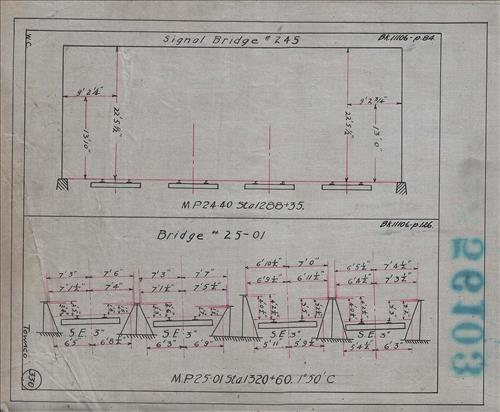 Signal Bridge # 245
Bk.11106-p.84.
W.C.
9' 2¼"
22' 5½"
13'10"
22' 5½"
9' 2¾"
13' 0"
M.P. 24.40 Sta 1288+35.
Bk.11106-p.126.
Bridge # 25-01
7' 3" 7' 6" 7' 3" 7' 7" 6' 10½" 7' 0" 6' 5½" 7' 4½"
7' 1½" 7' 4" 7' 1½" 7' 5½" 6' 9½" 6' 11½" 6' 4½" 7' 3½"
S.E. 3" S.E. 3" S.E. 3" S.E. 3"
6' 5" 6' 8½" 6' 3" 6' 9" 5' 11" 5' 9½" 5' 4½" 6' 3"
M.P. 25.01 Sta 1320+60. 1°50' C.
Towaco
330
26103